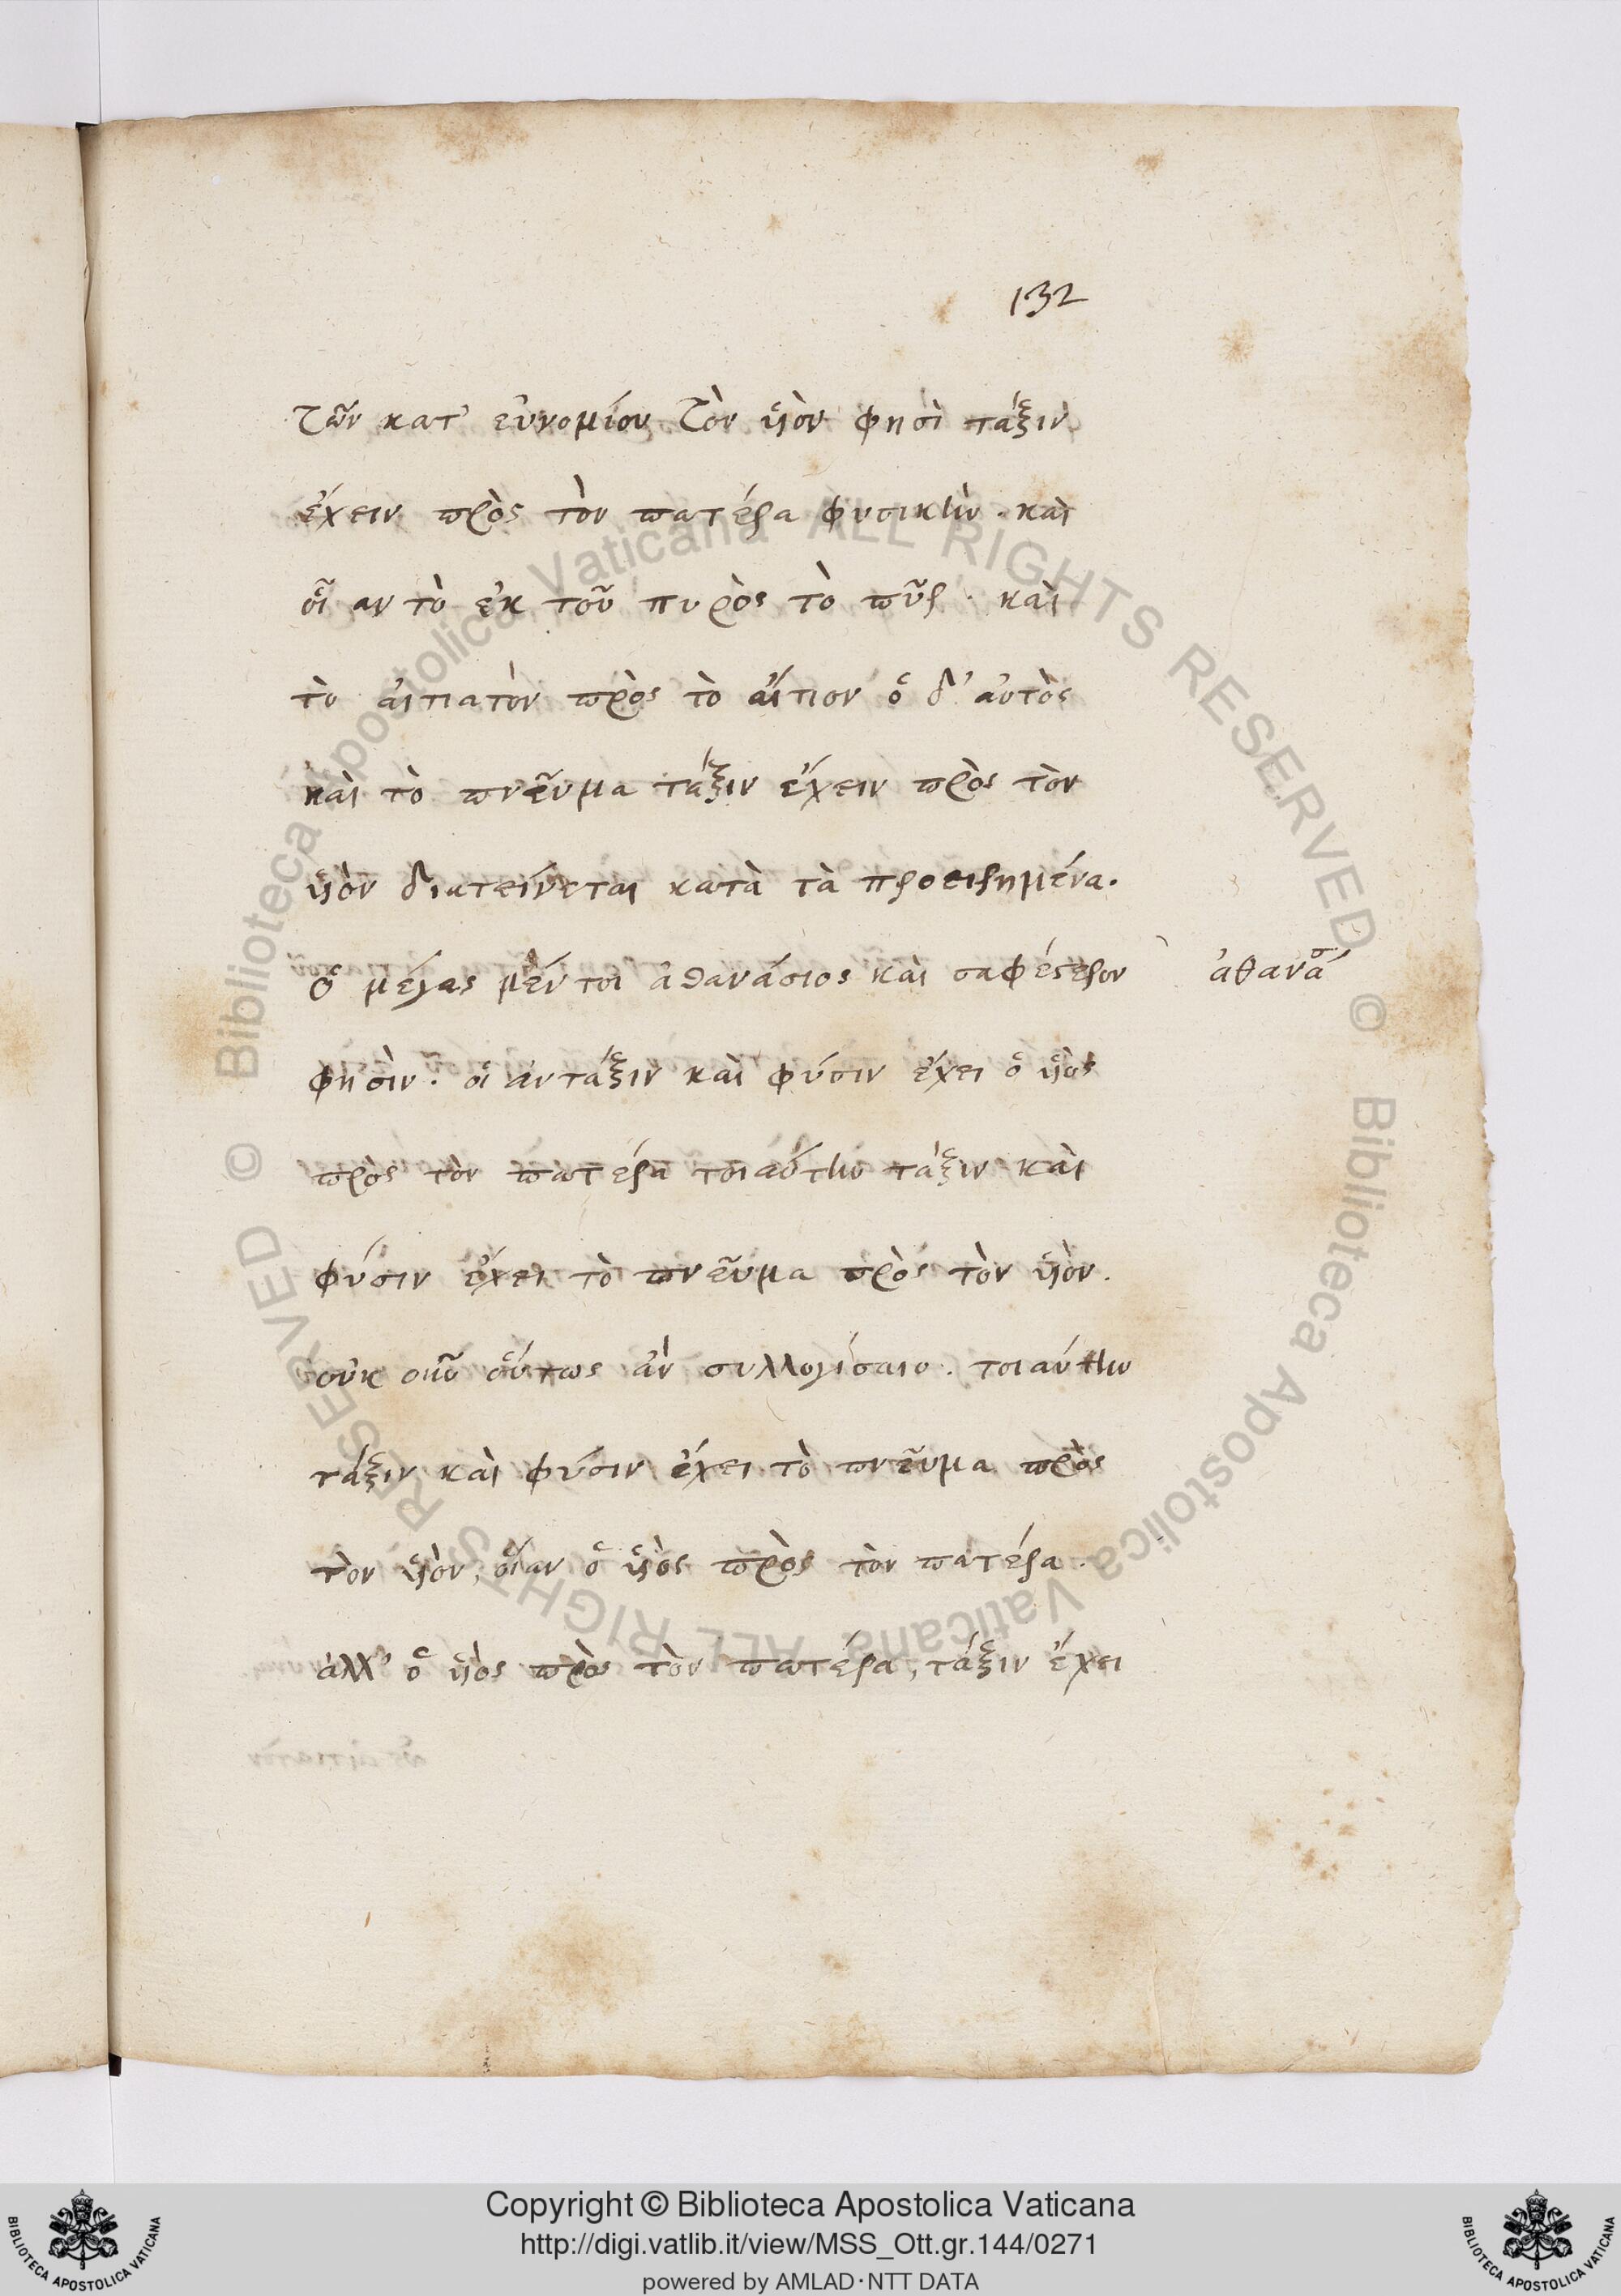 132
τῶν κατ' εὐνομίου τὸν υἱὸν φησὶ τάξιν
ἔχειν πρὸς τὸν πατέρα φυσικὴν. καὶ
οἷαν τὸ ἐκ τοῦ πυρὸς τὸ πῦρ. καὶ
τὸ αἰτιατὸν πρὸς τὸ αἴτιον ὁ δ' αὐτὸς
καὶ τὸ πνεῦμα τάξιν ἔχειν πρὸς τὸν
υἱὸν διατείνεται κατὰ τὰ προειρημένα.
ὁ μέγας μέντοι ἀθανάσιος καὶ σαφέστερον ἀθανασ
φησὶν. οἵαν τάξιν καὶ φύσιν ἔχει ὁ υἱὸς
πρὸς τὸν πατέρα τοιαύτην τάξιν καὶ
φύσιν ἔχει τὸ πνεῦμα πρὸς τὸν υἱὸν.
οὐκ οὖν οὕτως ἂν συλλογίσαιο. τοιαύτην
τάξιν καὶ φύσιν ἔχει τὸ πνεῦμα πρὸς
τὸν υἱὸν, οἵαν ὁ υἱὸς πρὸς τὸν πατέρα.
ἀλλ' ὁ υἱὸς πρὸς τὸν πατέρα, τάξιν ἔχει
© Biblioteca Apostolica Vaticana ALL RIGHTS RESERVED © Biblioteca Apostolica Vaticana ALL RIGHTS RESERVED
Copyright © Biblioteca Apostolica Vaticana
http://digi.vatlib.it/view/MSS_Ott.gr.144/0271
powered by AMLAD·NTT DATA
BIBLIOTECA APOSTOLICA VATICANA
BIBLIOTECA APOSTOLICA VATICANA